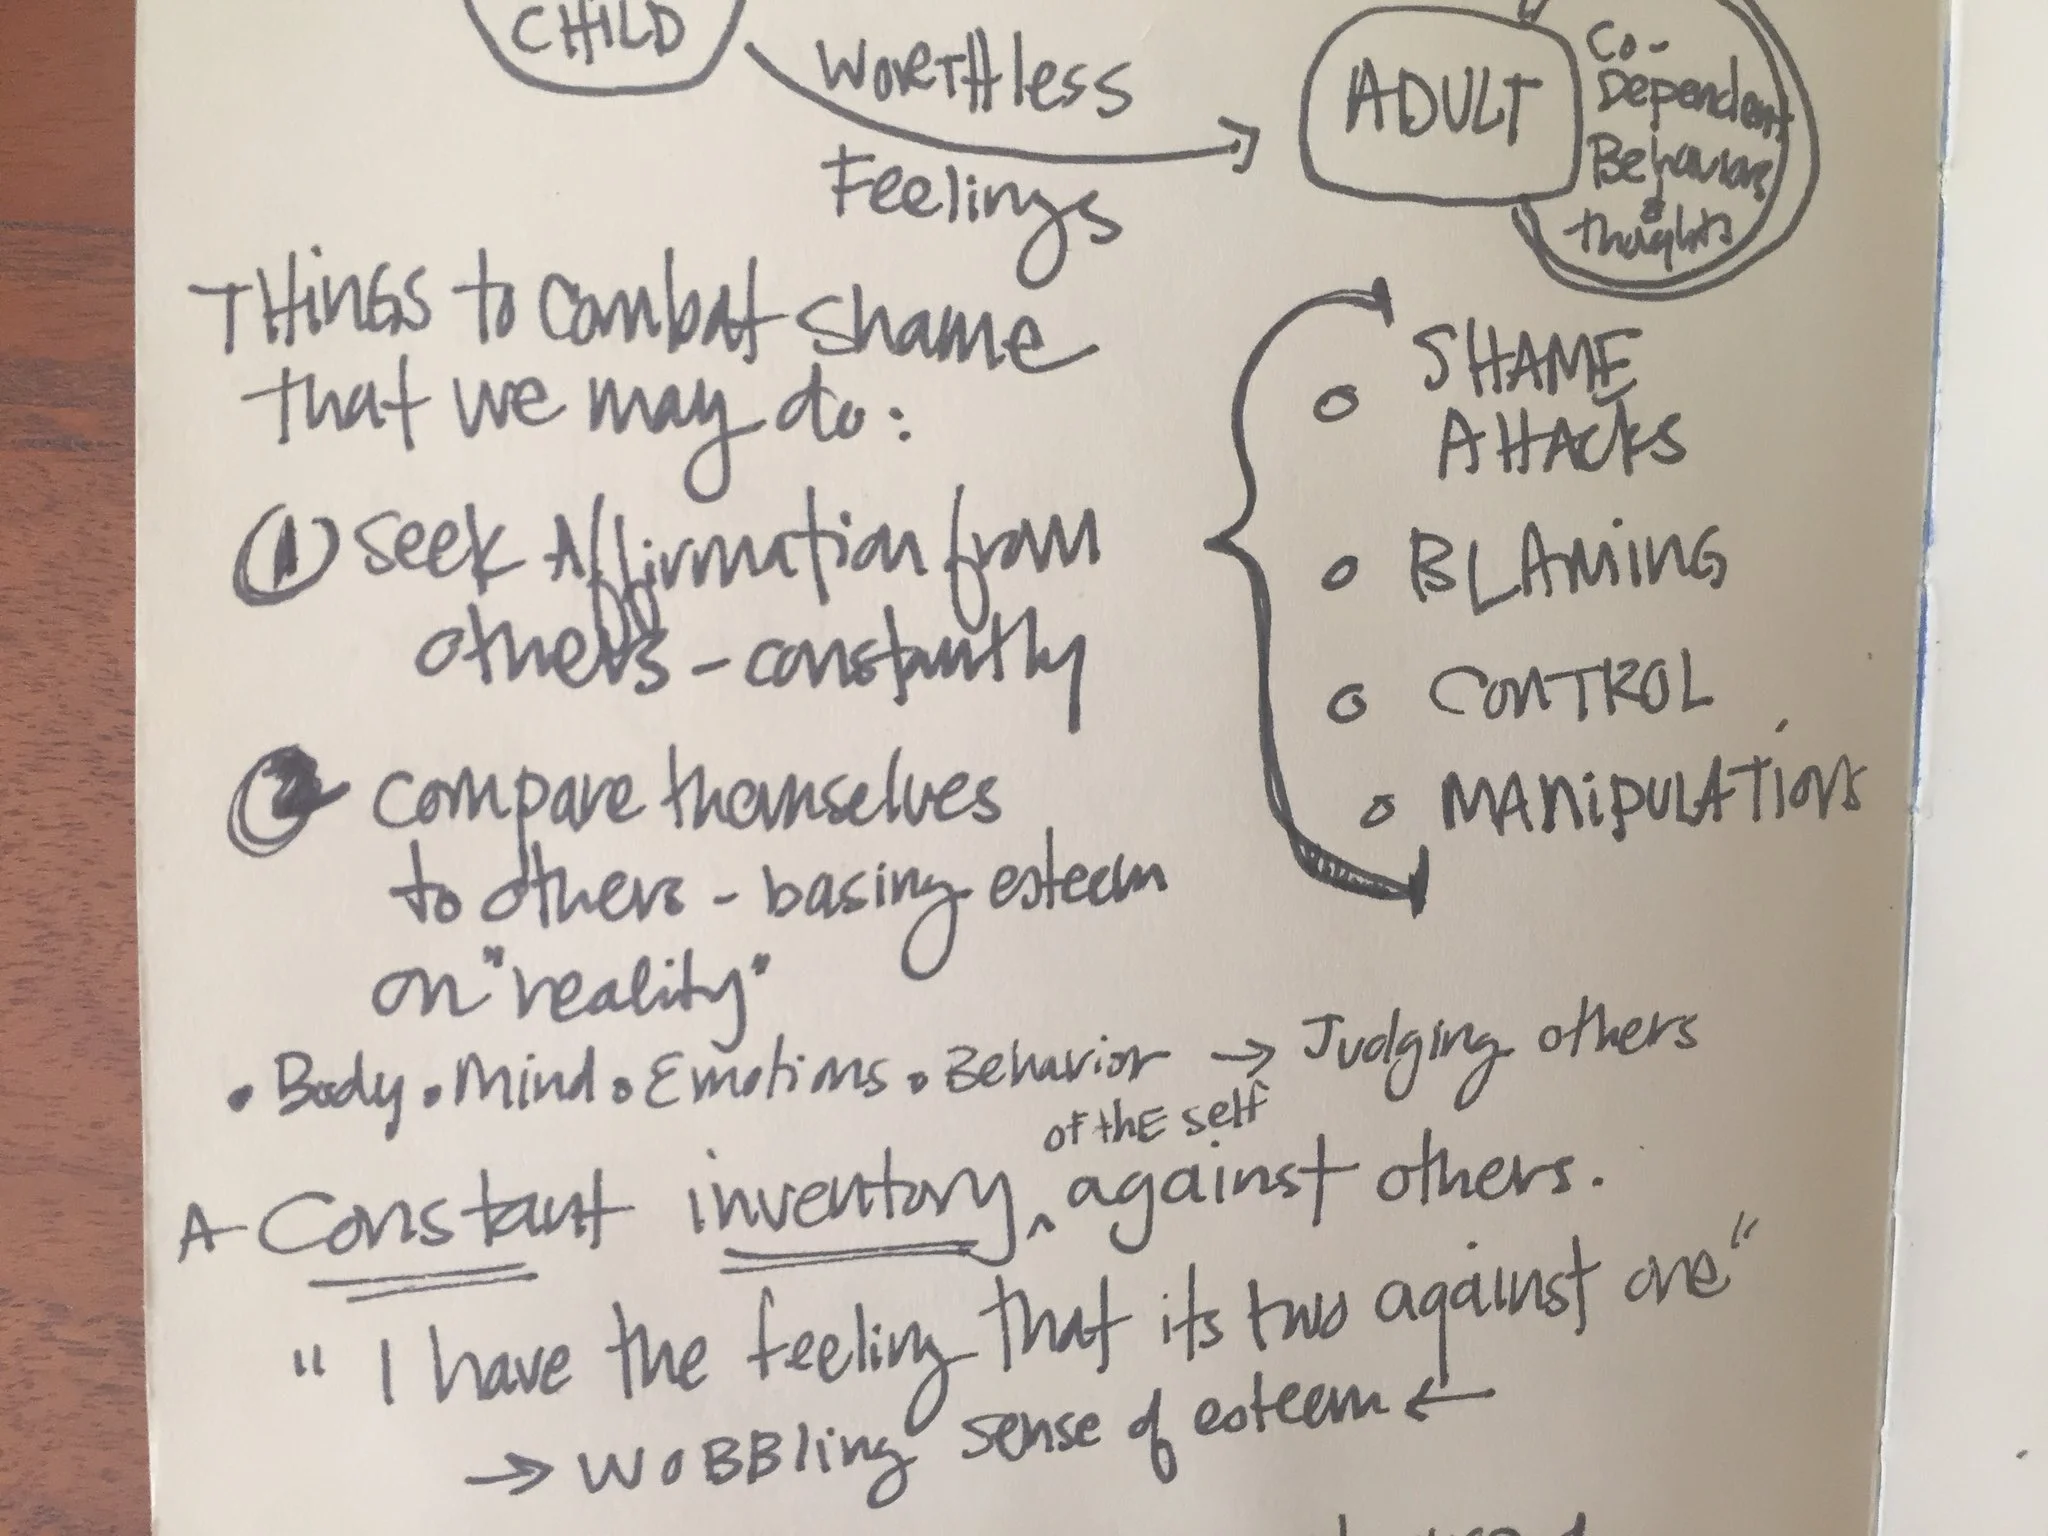 CHILD
WORTHless
Feelings
ADULT
Co-
Dependent
Behaviors
&
thoughts
THiNGS to combat shame
that we may do:
1 seek Affirmation from
others - constantly
2 compare themselves
to others - basing esteem
on "reality"
SHAME
AttAcks
BLAMiNG
CONTROL
MANipULATiONS
• Body • Mind • Emotions • Behavior → Judging others
of thE self
A Constant inventory ^ against others.
" I have the feeling that its two against one"
→ WOBBling sense of esteem ←